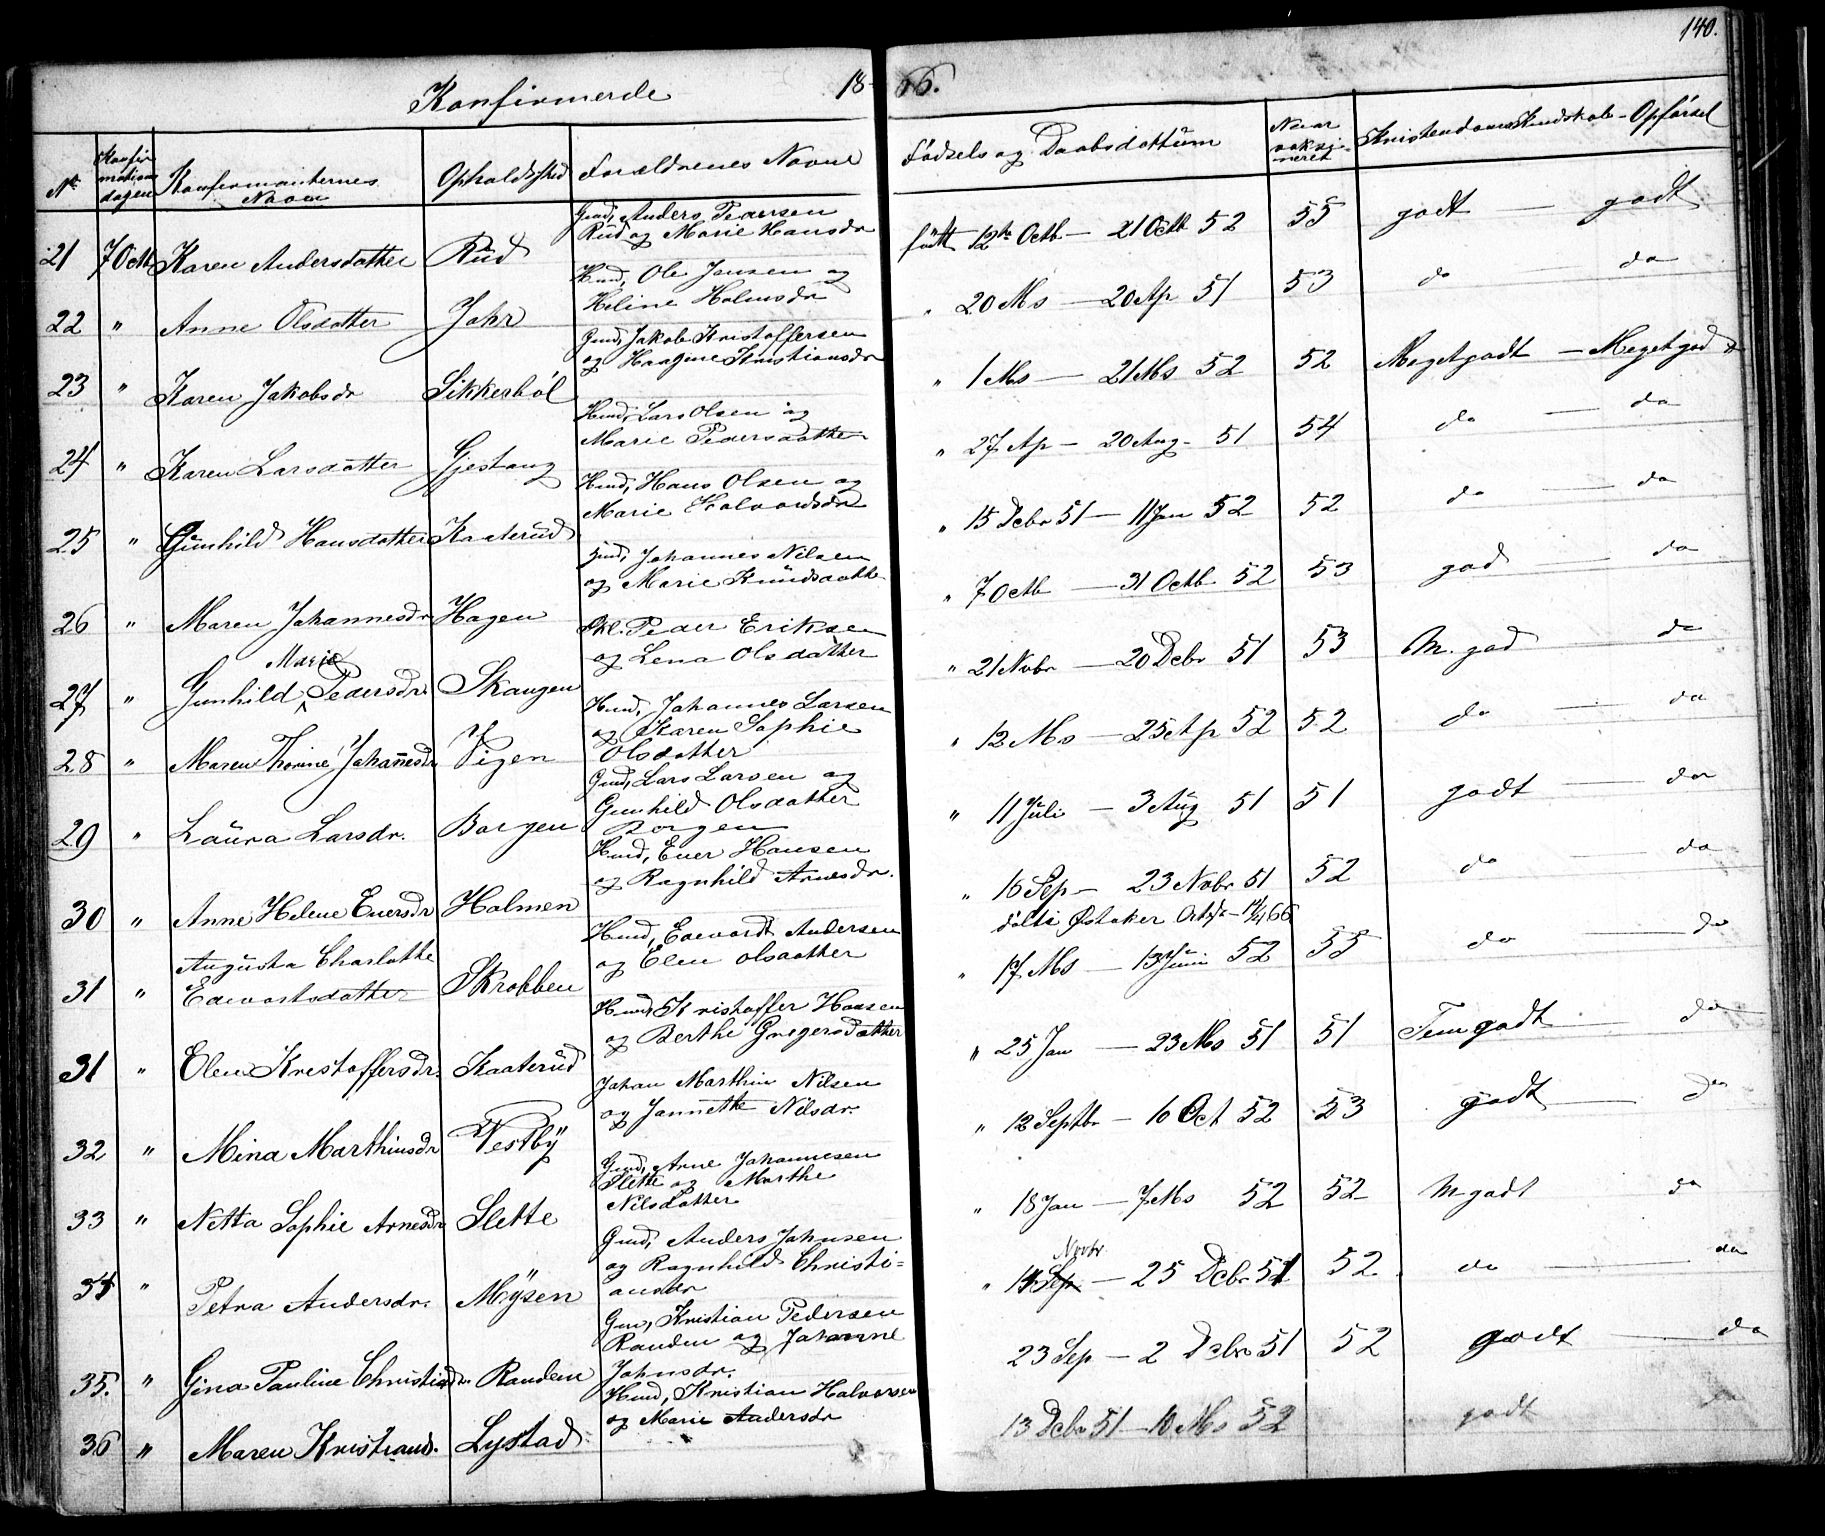 140.
Konfirmerde 18-66.
No Konfirmationsdagen Konfirmanternes Navn Opholdssted Forældrenes Navne Fødsels og Daabsdattum Naar vaksineret Kristendoms Kundskab - Opførsel
Gmd, Anders Pedersen
21 7 Octb Karen Andersdatter Rud Rud og Marie Hansdr født 12te Octb - 21 Octb 52 55 godt - godt
Hmd, Ole Jensen og
22 " Anne Olsdatter Jahr Heline Holmsdr " 20 Ms - 20 Ap 51 53 do - do
Gmd, Jakob Kristoffersen
23 " Karen Jakobsdr Sikkerbøl og Haagine Kristiansdr " 1 Ms - 21 Ms 52 52 Meget godt - Meget god
Hmd, Lars Olsen og
24 " Karen Larsdatter Gjestang Marie Pedersdatter " 27 Ap - 20 Aug - 51 54 do - do
Hmd, Hans Olsen og
25 " Gunhild Hansdatter Kaaterud Marie Halvordsdr " 15 Debr 51 - 11 Jan 52 52 do - do
Gmd, Johannes Nilsen
26 " Maren Johannesdr Hagen og Marie Knudsdatter " 7 Octb - 31 Octb 52 53 god - do
Skl. Peder Eriksen
27 " Gunhild Marie Pedersdr Skaugen og Lena Olsdatter " 21 Nvbr - 20 Debr 51 53 M. god - do
Hmd, Johannes Larsen
og Karen Sophie
28 " Maren Thorine Johannesdr Vigen Olsdatter " 12 Ms - 25 Ap 52 52 do - do
Gmd, Lars Larsen og
Gunhild Olsdatter
29 " Laura Larsdr. Borgen Borgen " 11 Juli - 3 Aug 51 51 godt - do
Hmd, Ener Hansen
30 " Anne Helene Enersdr Holmen og Ragnhild Arnesdr. " 16 Sep - 23 Nvbr 51 52 do - do
døbt i Østaker 66
Augusta Charlotte Hmd, Edevardt Andersen
31 " Edevartsdatter Skrobben og Elen Olsdatter " 17 Ms - 13 Juni 52 55 do - do
Hmd, Kristoffer Hansen
31 " Elen Kristoffersdr. Kaaterud og Berthe Gregersdatter " 25 Jan - 23 Ms 51 51 Tem godt - do
Johan Marthin Nilsen
32 " Mina Marthinsdr Vestby og Jannette Nilsdr. " 12 Septbr - 10 Oct 52 53 godt - do
Gmd, Arne Johannesen
Slette og Marthe
33 " Netta Sophie Arnesdr Slette Nilsdatter " 18 Jan - 7 Ms 52 52 M godt do
Gmd, Anders Johnsen
og Ragnhild Christi=
34 " Petra Andersdr. Mysen ansdr " 14 Sep Nvbr - 25 Debr 51 52 do - do
Gm, Kristian Pedersen
Randen og Johanne
35. " Gina Pauline Christiadr. Randem Johnsdr. 23 Sep - 2 Debr 51 52 godt - do
Hmd, Kristian Halvorsen
36 " Maren Kristiansd. Lystad og Marie Andersdr 13 Debr 51 - 10 Ms 52 godt do